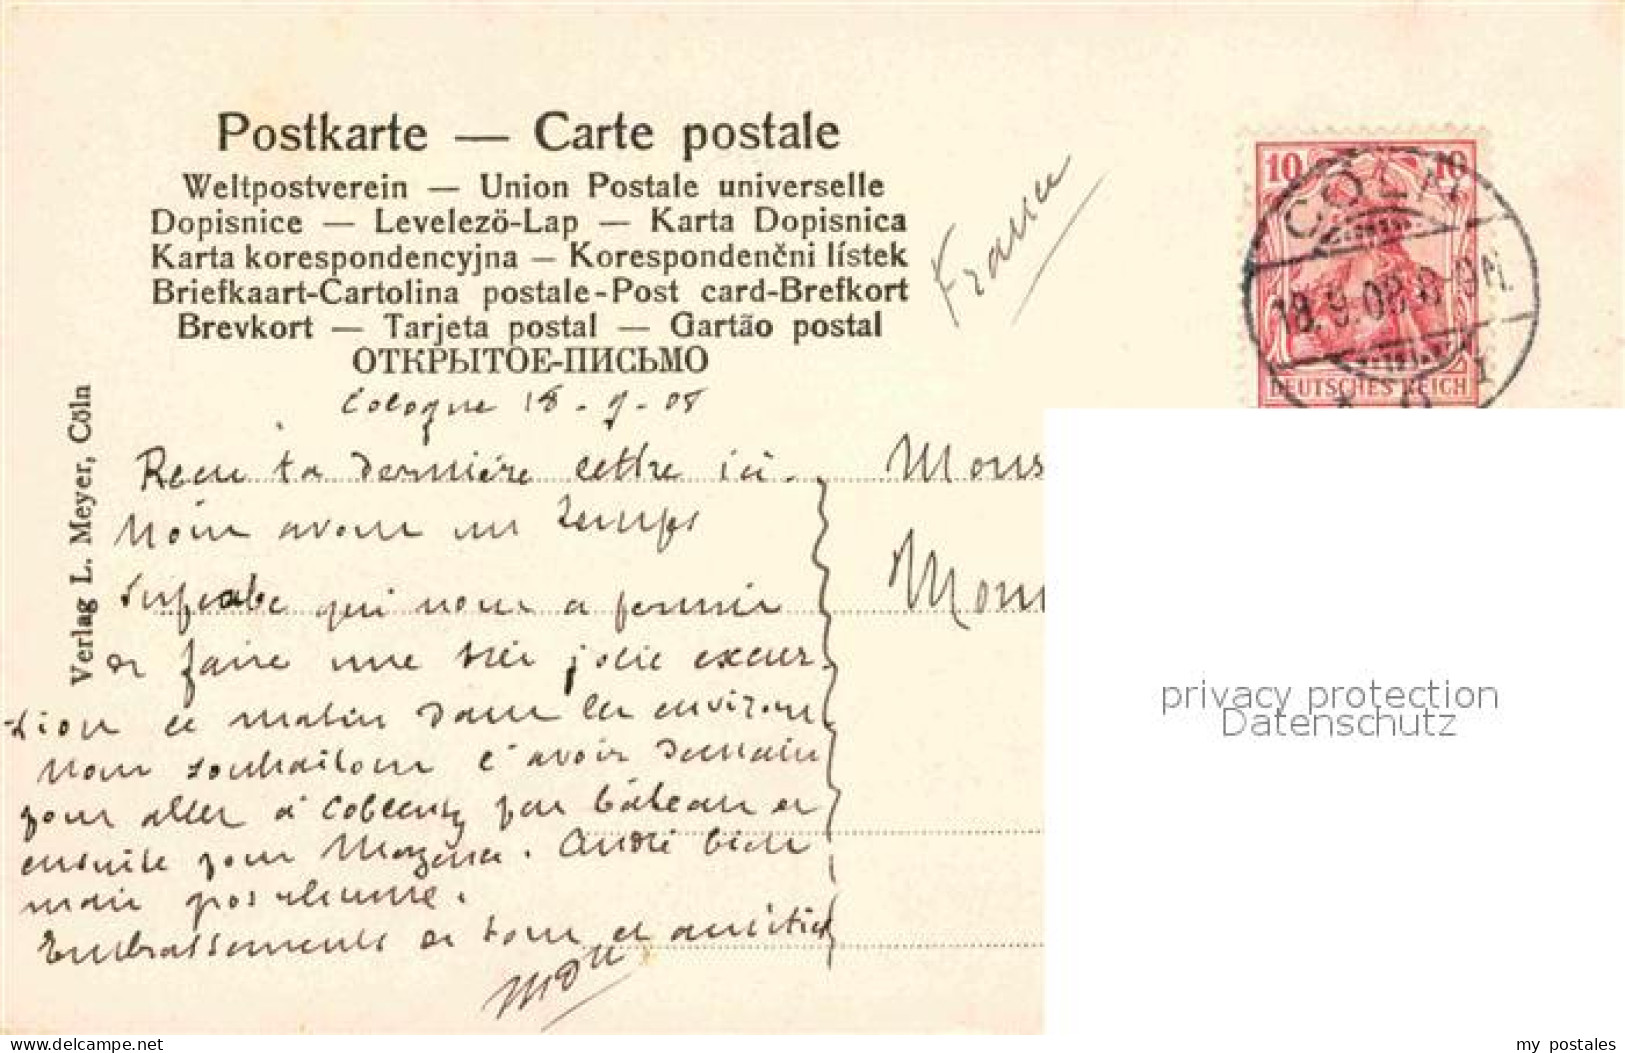 Postkarte — Carte postale
Weltpostverein — Union Postale universelle
Dopisnice — Levelezö-Lap — Karta Dopisnica
Karta korespondencyjna — Korespondenčni lístek
Briefkaart-Cartolina postale-Post card-Brefkort
Brevkort — Tarjeta postal — Gartão postal
ОТКРЫТОЕ-ПИСЬМО
France
10 10
CÖLN
18.9.08.8-9N
1
DEUTSCHES REICH
Verlag L. Meyer, Cöln
Cologne 18-9-08
Reçu ta dernière lettre ici.
Nous avons un temps
superbe qui nous a permis
de faire une très jolie excur-
tion ce matin dans les environs
Nous souhaitons l'avoir demain
pour aller à Coblentz par bâteau et
ensuite pour Mayence. André bien
mais pas
Embrassements de tous et amitiés
Mons
Mon
privacy protection
Datenschutz
Delcampe.net
my_postales